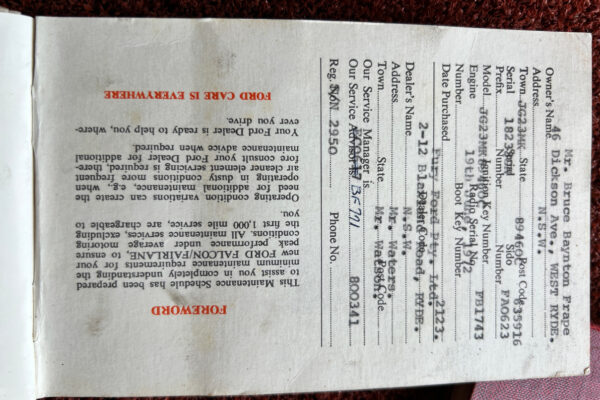 Mr. Bruce Baynton Frape
Owner's Name
46 Dickson Ave., WEST RYDE.
Address
N.S.W.
Town State Post Code
JG23MK 89460C 635916
Serial Serial Side
Prefix Number Number
18239 FA0623
Model Ignition Key Number
JG23MK FB1743
Engine Radio Serial No.
Number Boot Key Number
19th 1972
Date Purchased
Fury Ford Pty. Ltd. 2123.
Dealer's Name Dealer Code
2-12 Blaxland Road, RYDE.
Address
N.S.W.
Town State Post Code
Mr. Waters.
Our Service Manager is
Mr. Watson.
Our Service Advisor is
BFM 711
Reg. S/N 2950 Phone No. 800341
FOREWORD
This Maintenance Schedule has been prepared
to assist you in completely understanding the
minimum maintenance requirements for your
new FORD FALCON/FAIRLANE, to ensure
peak performance under average motoring
conditions. All maintenance services, excluding
the first 1,000 mile service, are chargeable to
you.
Operating condition variations can create the
need for additional maintenance, e.g., when
operating in dusty conditions more frequent
air cleaner element servicing is required, there-
fore consult your Ford Dealer for additional
maintenance advice when required.
Your Ford Dealer is ready to help you, where-
ever you drive.
FORD CARE IS EVERYWHERE